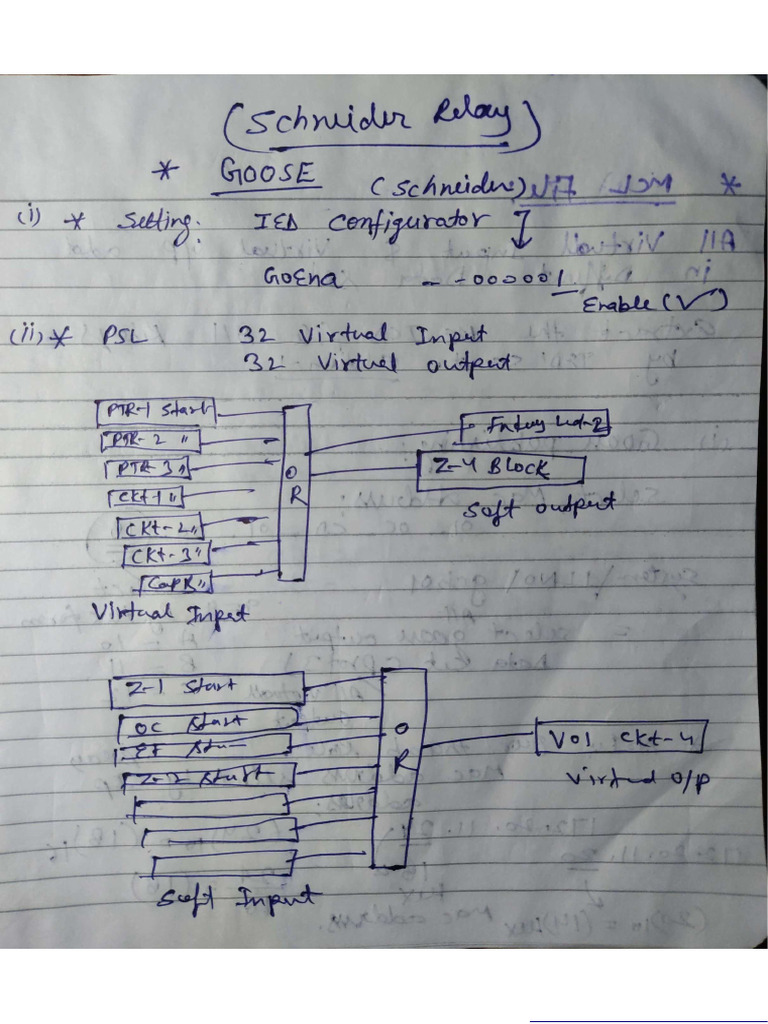 (Schneider Relay)
* GOOSE (Schneider)
(i) * Setting: IED Configurator
GoEna - - 000001
Enable (✓)
(ii) * PSL 32 Virtual Input
32 Virtual output
PTR-1 Start
PTR-2 "
PTR-3 "
Ckt-1 "
Ckt-2 "
Ckt-3 "
"
OR
Z-4 Block
Soft output
Virtual Input
Z-1 Start
OC Start
EF
Z-2 Start
OR
VO1 Ckt-4
Virtual O/P
Soft Input